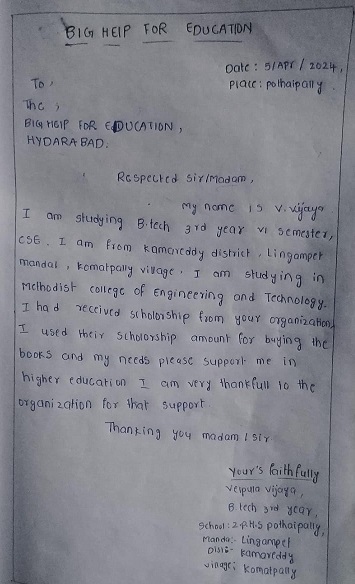 BIG HEIP FOR EDUCATION
Date : 5/APr / 2024,
Place: pothaipally
To ,
The ,
BIG HEIP FOR EDUCATION,
HYDARABAD.
Respected Sir/Madam,
My name is V. Vijaya
I am studying B.tech 3rd year VI semester,
CSE. I am from kamareddy district, Lingampet
mandal, komatpally village. I am studying in
Methodist college of Engineering and Technology.
I had received scholorship from your organization
I used their scholorship amount for buying the
books and my needs please support me in
higher education I am very thankfull to the
organization for that support
Thanking you madam / sir
Your's faithfully
Velpula Vijaya,
B.tech 3rd year,
School: Z.P.H.S pothaipally,
Manda:- Lingampet
Dist:- kamareddy
village: komatpally